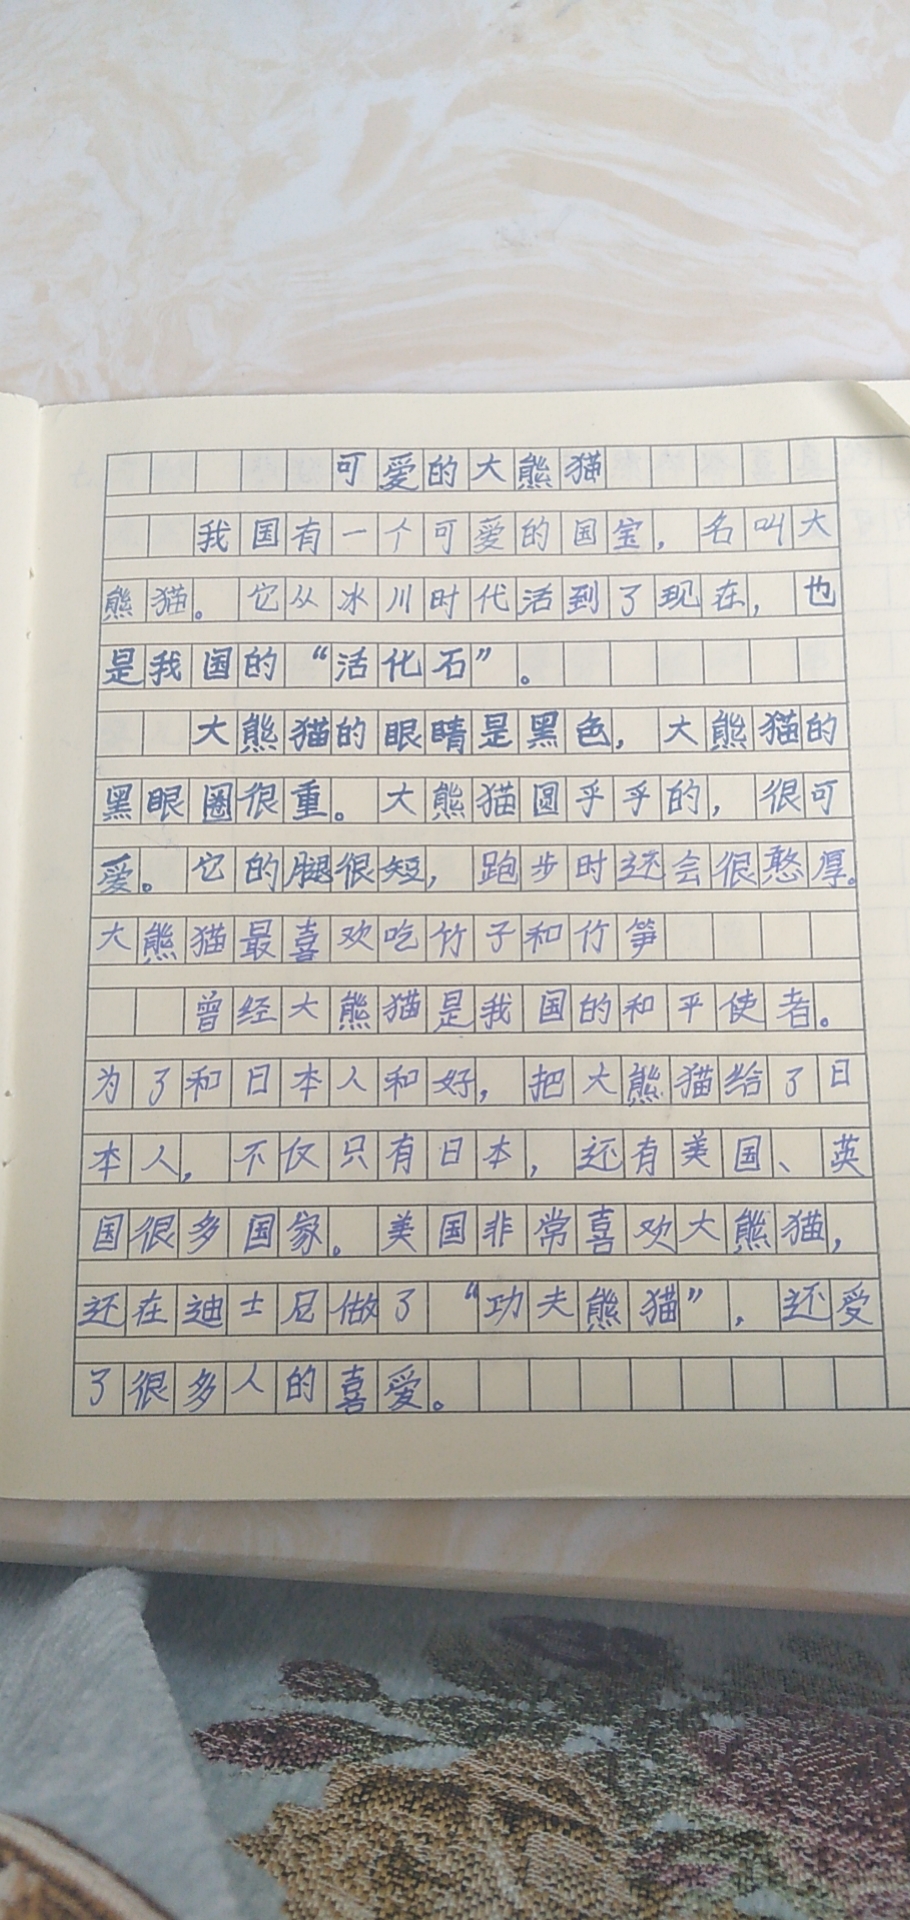 可爱的大熊猫
我国有一个可爱的国宝，名叫大
熊猫。它从冰川时代活到了现在，也
是我国的“活化石”。
大熊猫的眼睛是黑色，大熊猫的
黑眼圈很重。大熊猫圆乎乎的，很可
爱。它的腿很短，跑步时还会很憨厚。
大熊猫最喜欢吃竹子和竹笋
曾经大熊猫是我国的和平使者。
为了和日本人和好，把大熊猫给了日
本人，不仅只有日本，还有美国、英
国很多国家。美国非常喜欢大熊猫，
还在迪士尼做了“功夫熊猫”，还受
了很多人的喜爱。